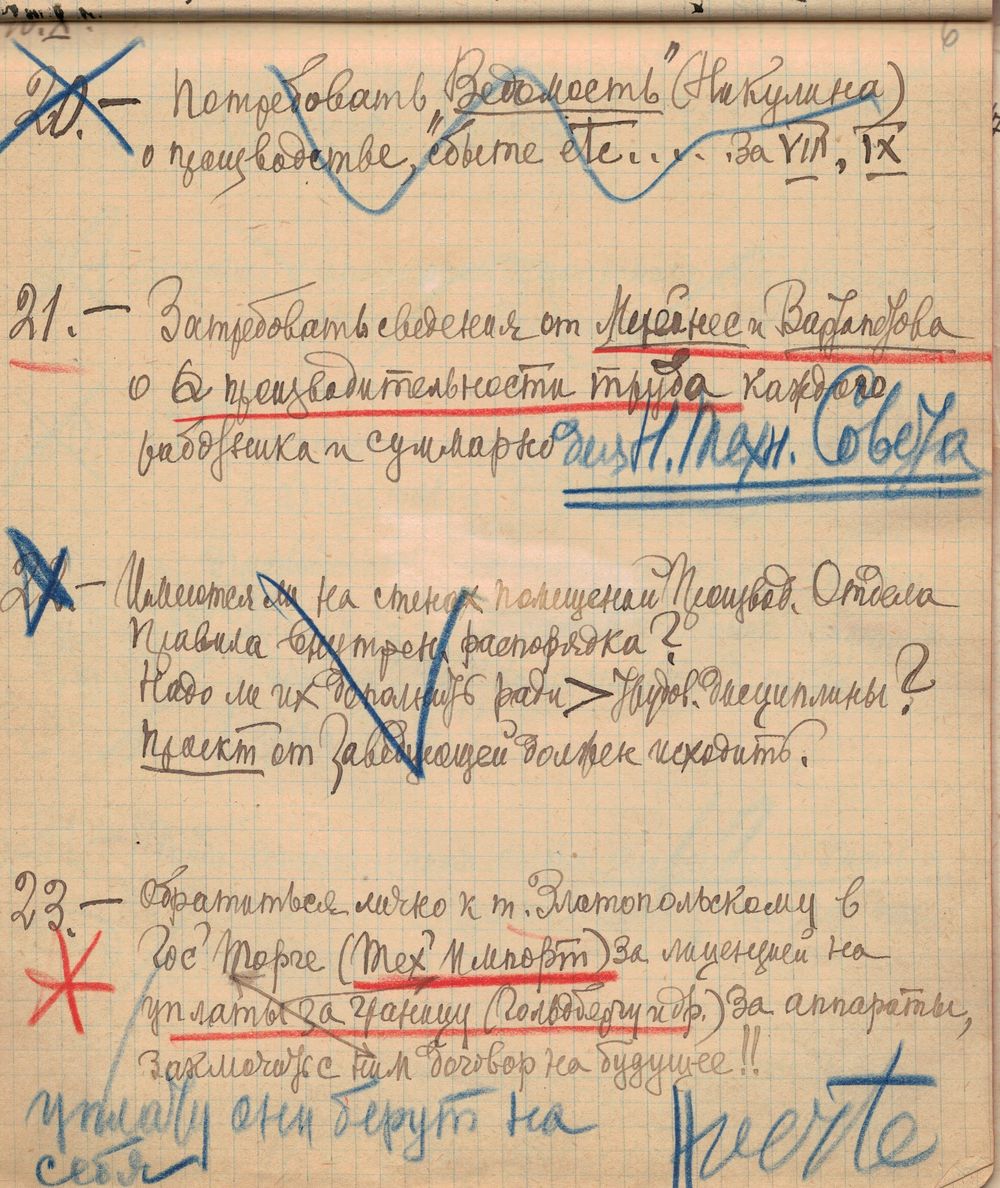 6
20. — Потребовать „Ведомость" (Никулина)
о производстве, сбыте etc..... за VIII, IX
21. — Затребовать сведения от Мейснес и Вартапетова
о производительности труда каждого
работника и суммарно
для Н. Техн. Совета
22. — Имеются ли на стенах помещений Производ. Отдела
Правила внутрен. распорядка?
Надо ли их дополнить ради > трудов. дисциплины?
Проект от Заведующей должен исходить.
23. — Обратиться лично к т. Златопольскому в
Гос Торге (Тех Импорт) за лицензией на
уплаты за границу (Гольдбергу и др.) за аппараты,
заключить с ним договор на будущее!!
уплату они берут на
себя